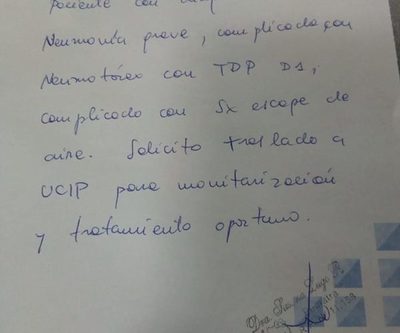 paciente con
Neumonía grave, complicada con
Neumotórax con TDP D1,
complicado con Sx escape de
aire. Solicito traslado a
UCIP para monitarización
y tratamiento oportuno.
Dra.